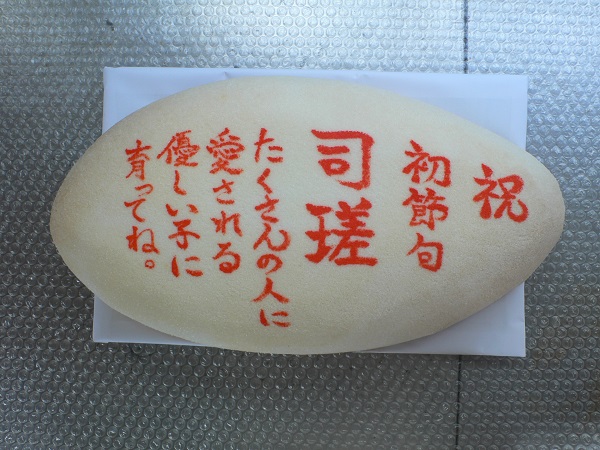 祝
初節句
司瑳
たくさんの人に
愛される
優しい子に
育ってね。